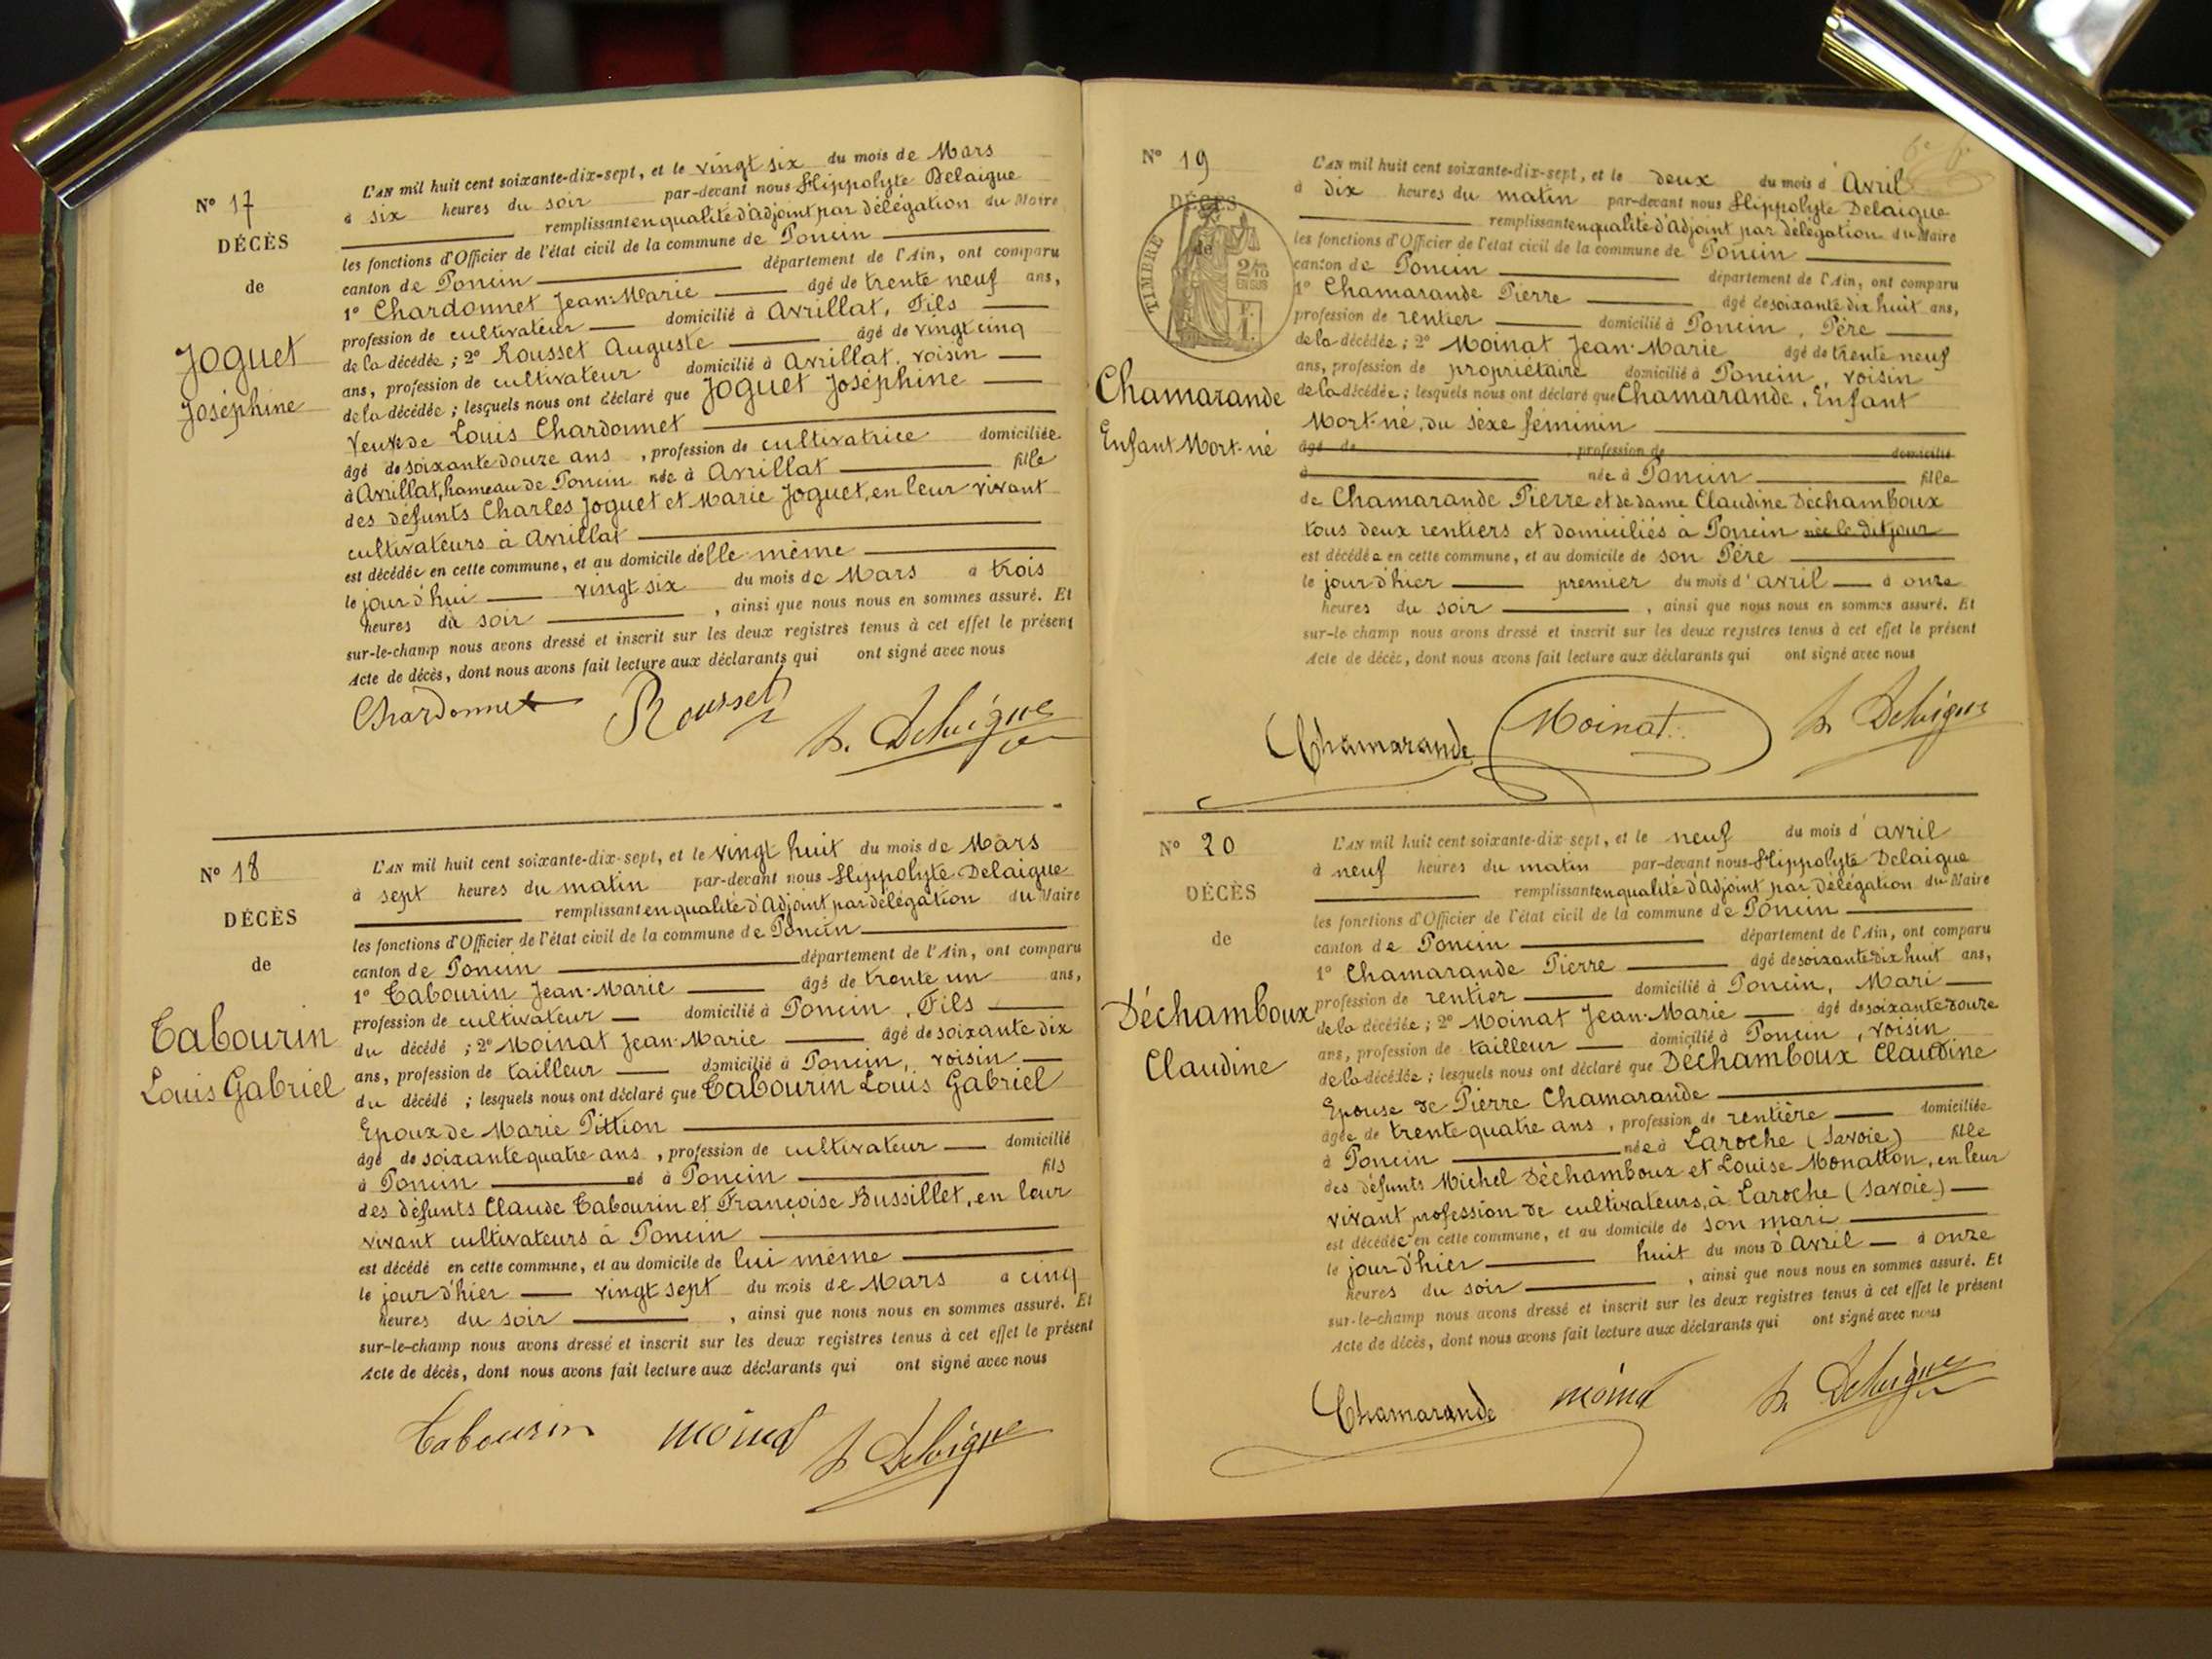 N° 17
DÉCÈS
de
Joguet
Joséphine
L'AN mil huit cent soixante-dix-sept, et le vingt six du mois de Mars
à six heures du soir par-devant nous Hippolyte Delaigue
remplissant en qualité d'Adjoint par délégation du Maire
les fonctions d'Officier de l'état civil de la commune de Poncin
canton de Poncin département de l'Ain, ont comparu
1° Chardonnet Jean-Marie âgé de trente neuf ans,
profession de cultivateur domicilié à Avrillat, Fils
de la décédée ; 2° Rousset Auguste âgé de vingt cinq
ans, profession de cultivateur domicilié à Avrillat, voisin
de la décédée ; lesquels nous ont déclaré que Joguet Joséphine
Veuve de Louis Chardonnet
âgé de soixante douze ans, profession de cultivatrice domiciliée
à Avrillat, hameau de Poncin née à Avrillat fille
des défunts Charles Joguet et Marie Joguet, en leur vivant
cultivateurs à Avrillat
est décédée en cette commune, et au domicile d'elle même
le jour d'hui vingt six du mois de Mars à trois
heures du soir, ainsi que nous nous en sommes assuré. Et
sur-le-champ nous avons dressé et inscrit sur les deux registres tenus à cet effet le présent
Acte de décès, dont nous avons fait lecture aux déclarants qui ont signé avec nous
Chardonnet Rousset h. Delaigue
N° 18
DÉCÈS
de
Tabourin
Louis Gabriel
L'AN mil huit cent soixante-dix-sept, et le vingt huit du mois de Mars
à sept heures du matin par-devant nous Hippolyte Delaigue
remplissant en qualité d'Adjoint par délégation du Maire
les fonctions d'Officier de l'état civil de la commune de Poncin
canton de Poncin département de l'Ain, ont comparu
1° Tabourin Jean-Marie âgé de trente un ans,
profession de cultivateur domicilié à Poncin, Fils
du décédé ; 2° Moinat Jean-Marie âgé de soixante dix
ans, profession de tailleur domicilié à Poncin, voisin
du décédé ; lesquels nous ont déclaré que Tabourin Louis Gabriel
Epoux de Marie Pittion
âgé de soixante quatre ans, profession de cultivateur domicilié
à Poncin né à Poncin fils
des défunts Claude Tabourin et Françoise Bussillet, en leur
vivant cultivateurs à Poncin
est décédé en cette commune, et au domicile de lui même
le jour d'hier vingt sept du mois de Mars à cinq
heures du soir, ainsi que nous nous en sommes assuré. Et
sur-le-champ nous avons dressé et inscrit sur les deux registres tenus à cet effet le présent
Acte de décès, dont nous avons fait lecture aux déclarants qui ont signé avec nous
Tabourin moinat h Delaigue
N° 19
DÉCÈS
de
TIMBRE
2/10
EN SUS
Chamarande
Enfant Mort-né
L'AN mil huit cent soixante-dix-sept, et le deux du mois d'Avril
à dix heures du matin par-devant nous Hippolyte Delaigue
remplissant en qualité d'Adjoint par délégation du Maire
les fonctions d'Officier de l'état civil de la commune de Poncin
canton de Poncin département de l'Ain, ont comparu
1° Chamarande Pierre âgé de soixante dix huit ans,
profession de rentier domicilié à Poncin, Père
de la décédée ; 2° Moinat Jean-Marie âgé de trente neuf
ans, profession de propriétaire domicilié à Poncin, voisin
de la décédée ; lesquels nous ont déclaré que Chamarande, Enfant
Mort-né, du sèxe féminin
âgé de, profession de domicilié
à née à Poncin fille
de Chamarande Pierre et de dame Claudine Déchamboux
tous deux rentiers et domiciliés à Poncin née le dit jour
est décédée en cette commune, et au domicile de son Père
le jour d'hier premier du mois d'avril à onze
heures du soir, ainsi que nous nous en sommes assuré. Et
sur-le-champ nous avons dressé et inscrit sur les deux registres tenus à cet effet le présent
Acte de décès, dont nous avons fait lecture aux déclarants qui ont signé avec nous
Chamarande Moinat h Delaigue
N° 20
DÉCÈS
de
Déchamboux
Claudine
L'AN mil huit cent soixante-dix-sept, et le neuf du mois d'avril
à neuf heures du matin par-devant nous Hippolyte Delaigue
remplissant en qualité d'Adjoint par délégation du Maire
les fonctions d'Officier de l'état civil de la commune de Poncin
canton de Poncin département de l'Ain, ont comparu
1° Chamarande Pierre âgé de soixante dix huit ans,
profession de rentier domicilié à Poncin, Mari
de la décédée ; 2° Moinat Jean-Marie âgé de soixante douze
ans, profession de tailleur domicilié à Poncin, voisin
de la décédée ; lesquels nous ont déclaré que Déchamboux Claudine
Epouse de Pierre Chamarande
âgée de trente quatre ans, profession de rentière domiciliée
à Poncin née à Laroche (Savoie) fille
des défunts Michel Déchamboux et Louise Monatton, en leur
vivant profession de cultivateurs, à Laroche (Savoie)
est décédée en cette commune, et au domicile de son mari
le jour d'hier huit du mois d'Avril à onze
heures du soir, ainsi que nous nous en sommes assuré. Et
sur-le-champ nous avons dressé et inscrit sur les deux registres tenus à cet effet le présent
Acte de décès, dont nous avons fait lecture aux déclarants qui ont signé avec nous
Chamarande moinat h. Delaigue